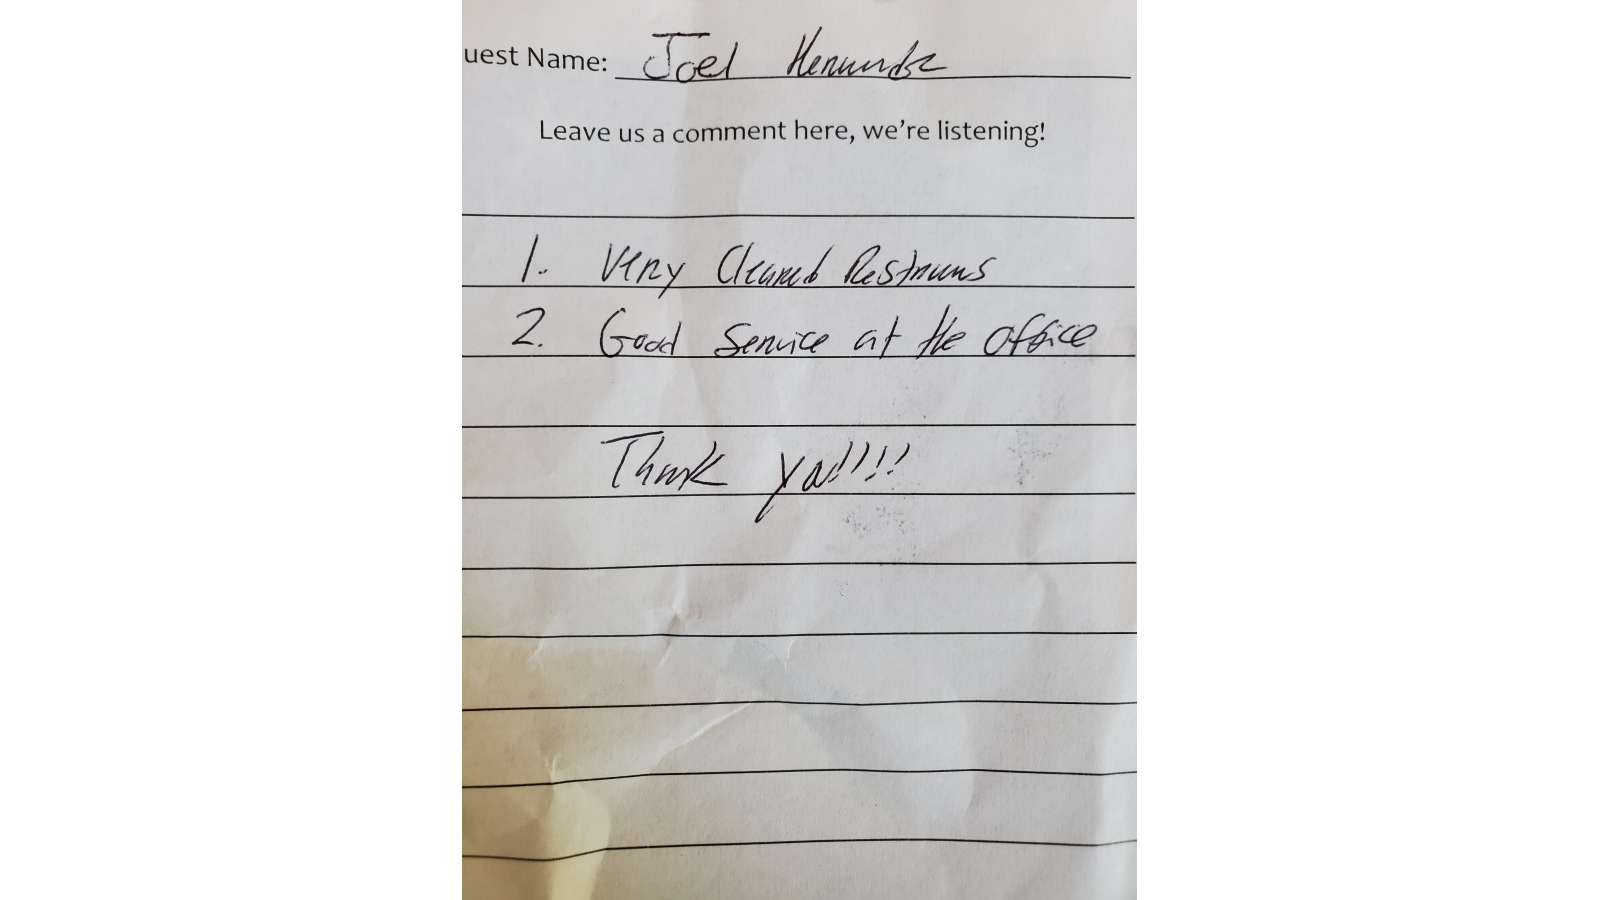 uest Name: Joel Hernandez
Leave us a comment here, we're listening!
1. Very Cleaned Restrooms
2. Good Service at the office
Thank ya!!!!